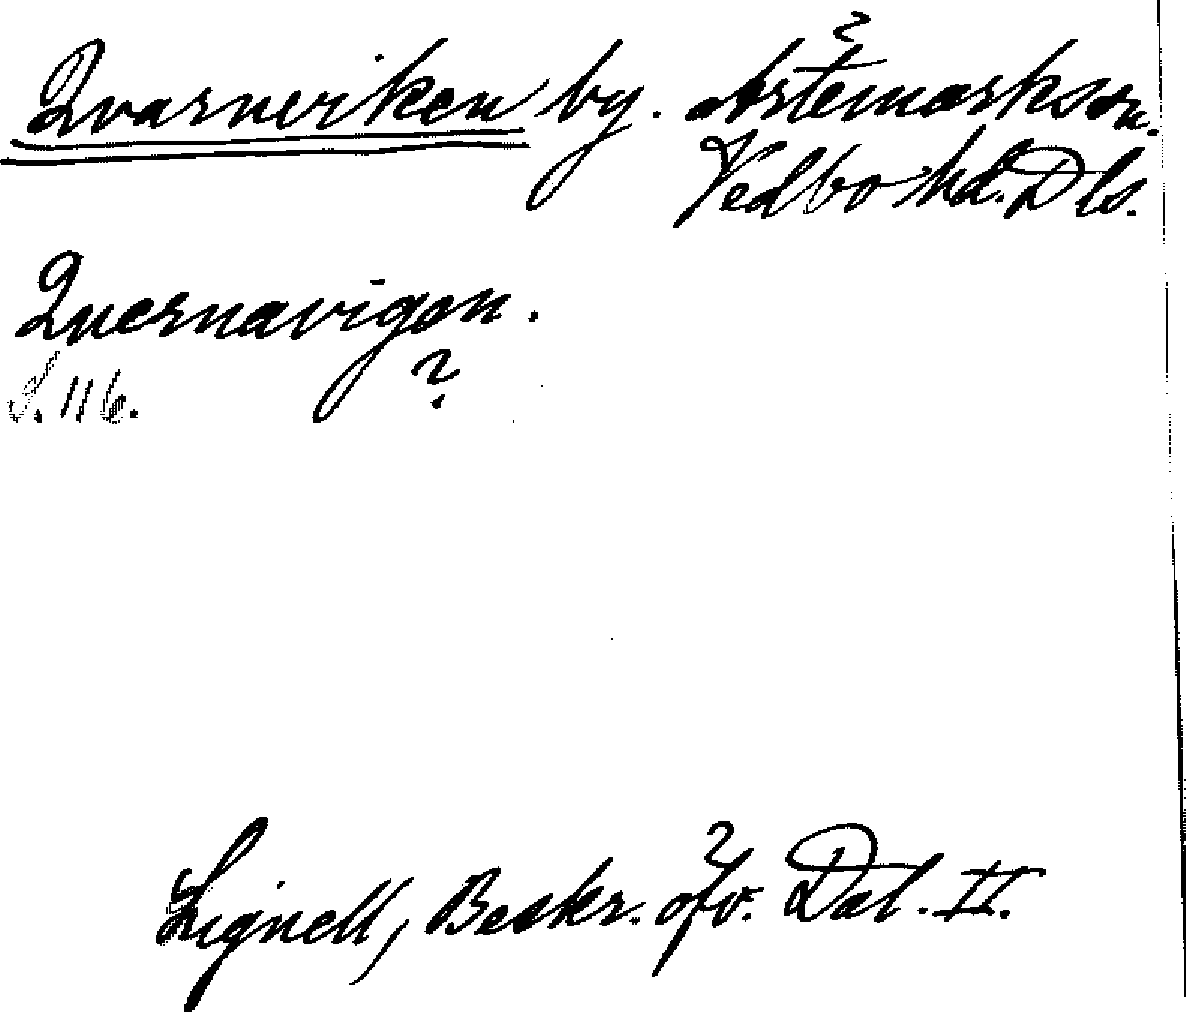 Qvarnviken by. Ärtemarks sn.
Vedbo hd. Dls.
Quernavigon.
S. 116.
Lignell, Beskr. öfv. Dal. II.